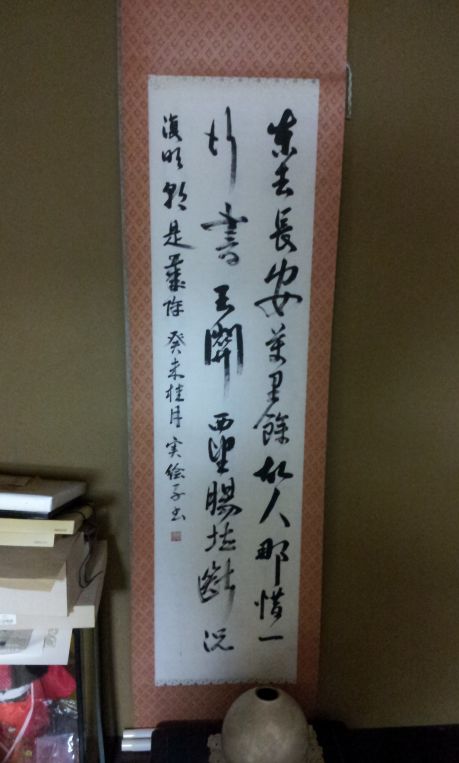 東去長安萬里餘故人那惜一
行書玉關西望腸堪斷況
復明朝是歲除 癸未桂月 実絵子書